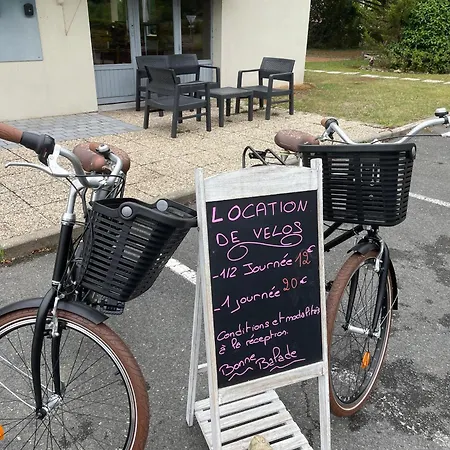 LOCATION
DE VELOS
- 1/2 Journée 12 €
- 1 journée 20 €
Conditions et modalités
à la réception.
Bonne Balade